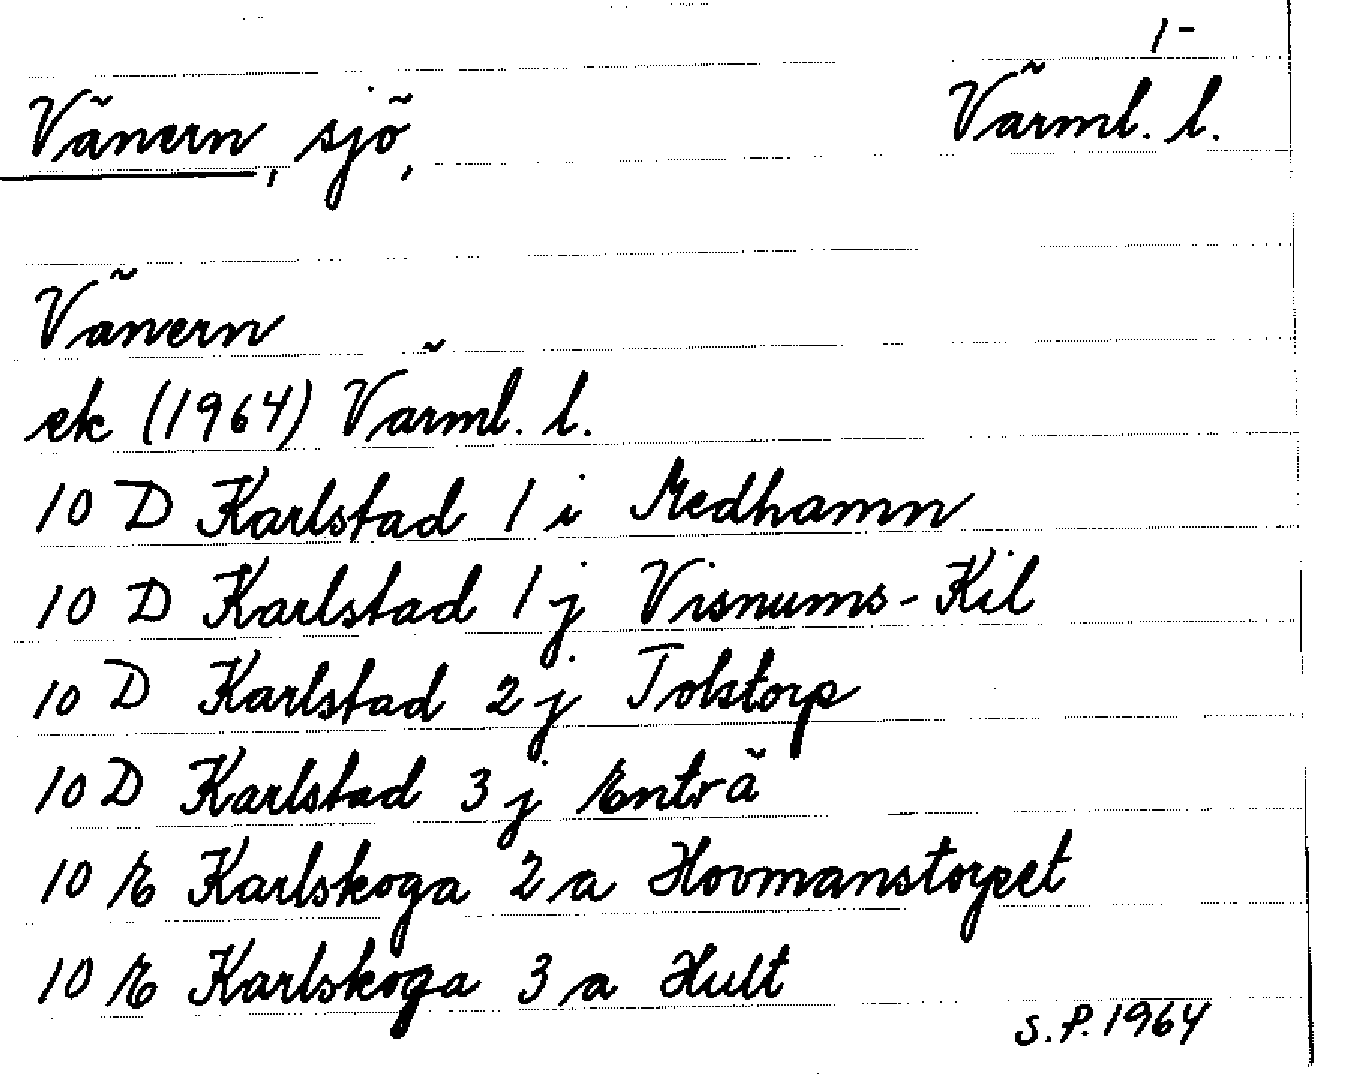 1-
Vänern, sjö, Värml. l.
Vänern
ek (1964) Värml. l.
10 D Karlstad 1 i Medhamn
10 D Karlstad 1 j Visnums-Kil
10 D Karlstad 2 j Tolstorp
10 D Karlstad 3 j Enträ
10 E Karlskoga 2 a Hovmanstorpet
10 E Karlskoga 3 a Hult
S.P. 1964